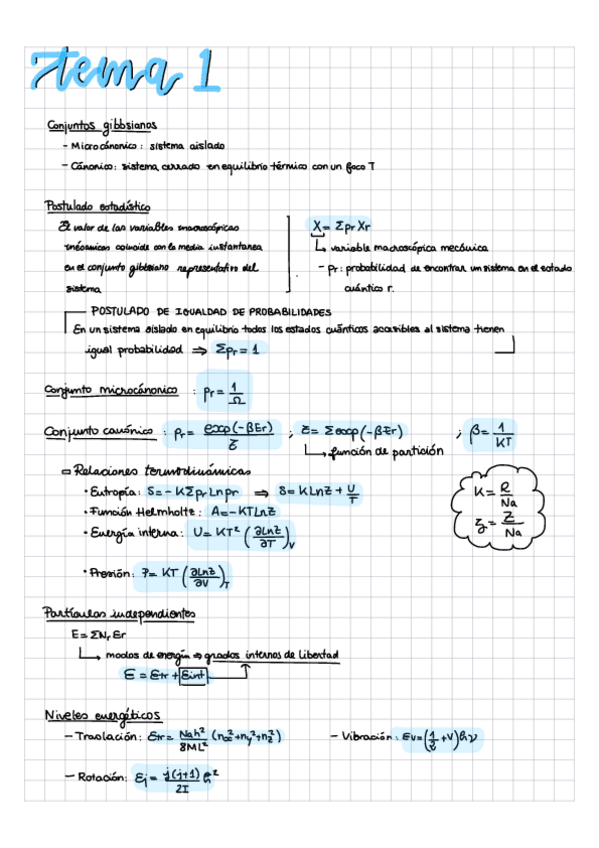 tema 1
Conjuntos gibbsianos
- Microcánonico: sistema aislado
- Cánonico: sistema cerrado en equilibrio térmico con un foco T
Postulado estadístico
El valor de las variables macroscópicas
mecánicas coincide con la media instantanea
en el conjunto gibbsiano representativo del
sistema
X = Σpr Xr
↳ variable macroscópica mecánica
- pr: probabilidad de encontrar un sistema en el estado
cuántico r.
POSTULADO DE IGUALDAD DE PROBABILIDADES
En un sistema aislado en equilibrio todos los estados cuánticos accesibles al sistema tienen
igual probabilidad ⇒ Σpr = 1
Conjunto microcánonico : pr = 1/Ω
Conjunto canónico : pr = exp(-βEr)/Z ; Z = Σexp(-βEr) ; β = 1/KT
↳ función de partición
Relaciones termodinámicas
• Entropía: S = -KΣpr Ln pr ⇒ S = K Ln Z + U/T
• Función Helmholtz: A = -KTLnZ
• Energía interna: U = KT² (∂LnZ/∂T)V
• Presión: P = KT (∂LnZ/∂V)T
K = R/Na
z = Z/Na
Partículas independientes
E = ΣNr Er
↳ modos de energía ⇒ grados internos de libertad
ε = εtr + εint
Niveles energéticos
- Traslación: εtr = Nah²/8ML² (nx²+ny²+nz²)
- Vibración: εv = (1/2 + v)hν
- Rotación: εj = j(j+1)/2I ℏ²